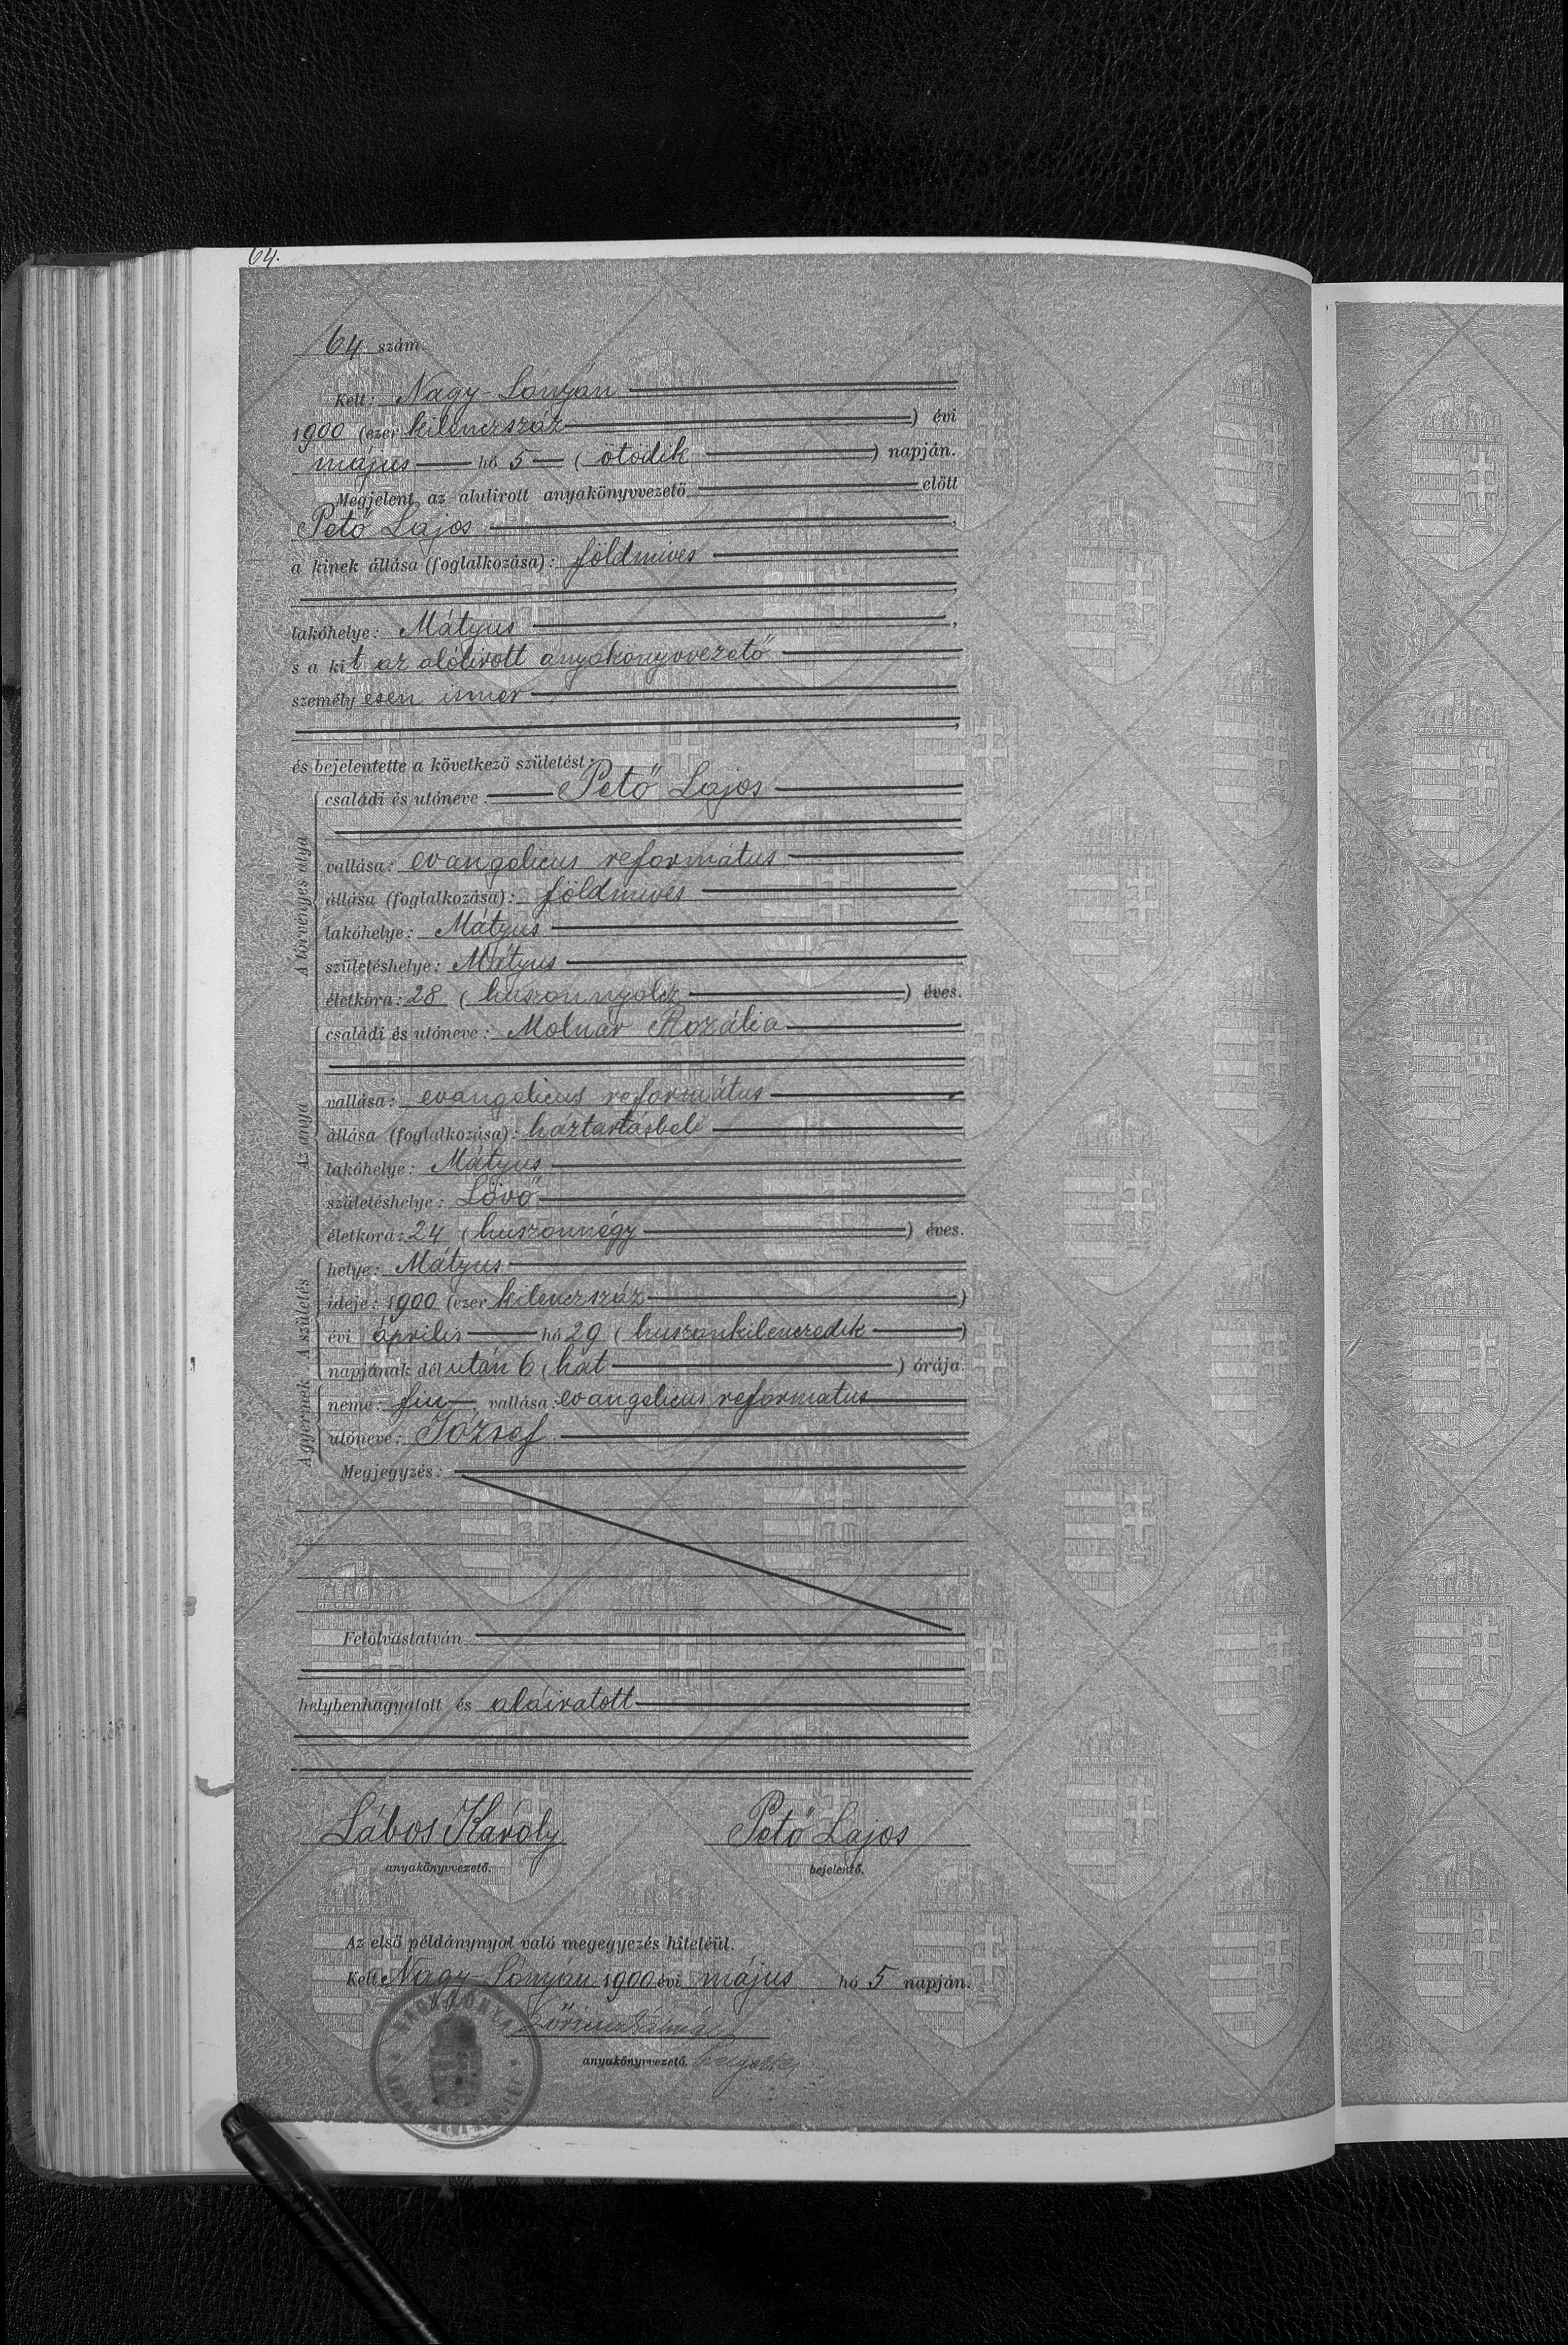 64.
64 szám.
Kelt: Nagy-Lónyán
1900 (ezer kilenczszáz) évi
május hó 5 (ötödik) napján.
Megjelent az alulirott anyakönyvvezető előtt
Pető Lajos,
a kinek állása (foglalkozása): földmives
lakóhelye: Mátyus,
s a kit az alólirott anyakönyvvezető
személyesen ismer
és bejelentette a következő születést:
A törvényes atya
családi és utóneve: Pető Lajos
vallása: evangelicus református
állása (foglalkozása): földmives
lakóhelye: Mátyus
születéshelye: Mátyus
életkora: 28 (huszonnyolcz) éves.
Az anya
családi és utóneve: Molnár Rozália
vallása: evangelicus református
állása (foglalkozása): háztartásbeli
lakóhelye: Mátyus
születéshelye: Lövő
életkora: 24 (huszonnégy) éves.
A születés
helye: Mátyus
ideje: 1900 (ezer kilenczszáz)
évi április hó 29 (huszonkilenczedik)
napjának délután 6 (hat) órája.
A gyermek
neme: fiu, vallása: evangelicus reformatus
utóneve: József
Megjegyzés:
Felolvastatván
helybenhagyatott és aláiratott
Lábos Károly Pető Lajos
anyakönyvvezető. bejelentő.
Az első példánynyal való megegyezés hiteléül.
Kelt Nagy-Lónyán 1900 évi május hó 5 napján.
anyakönyvvezető